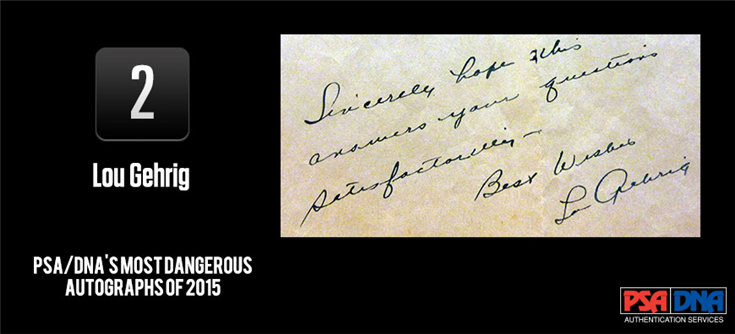 2
Lou Gehrig
PSA/DNA'S MOST DANGEROUS
AUTOGRAPHS OF 2015
Sincerely hope this
answers your questions
satisfactorily –
Best Wishes
Lou Gehrig
PSA DNA
AUTHENTICATION SERVICES